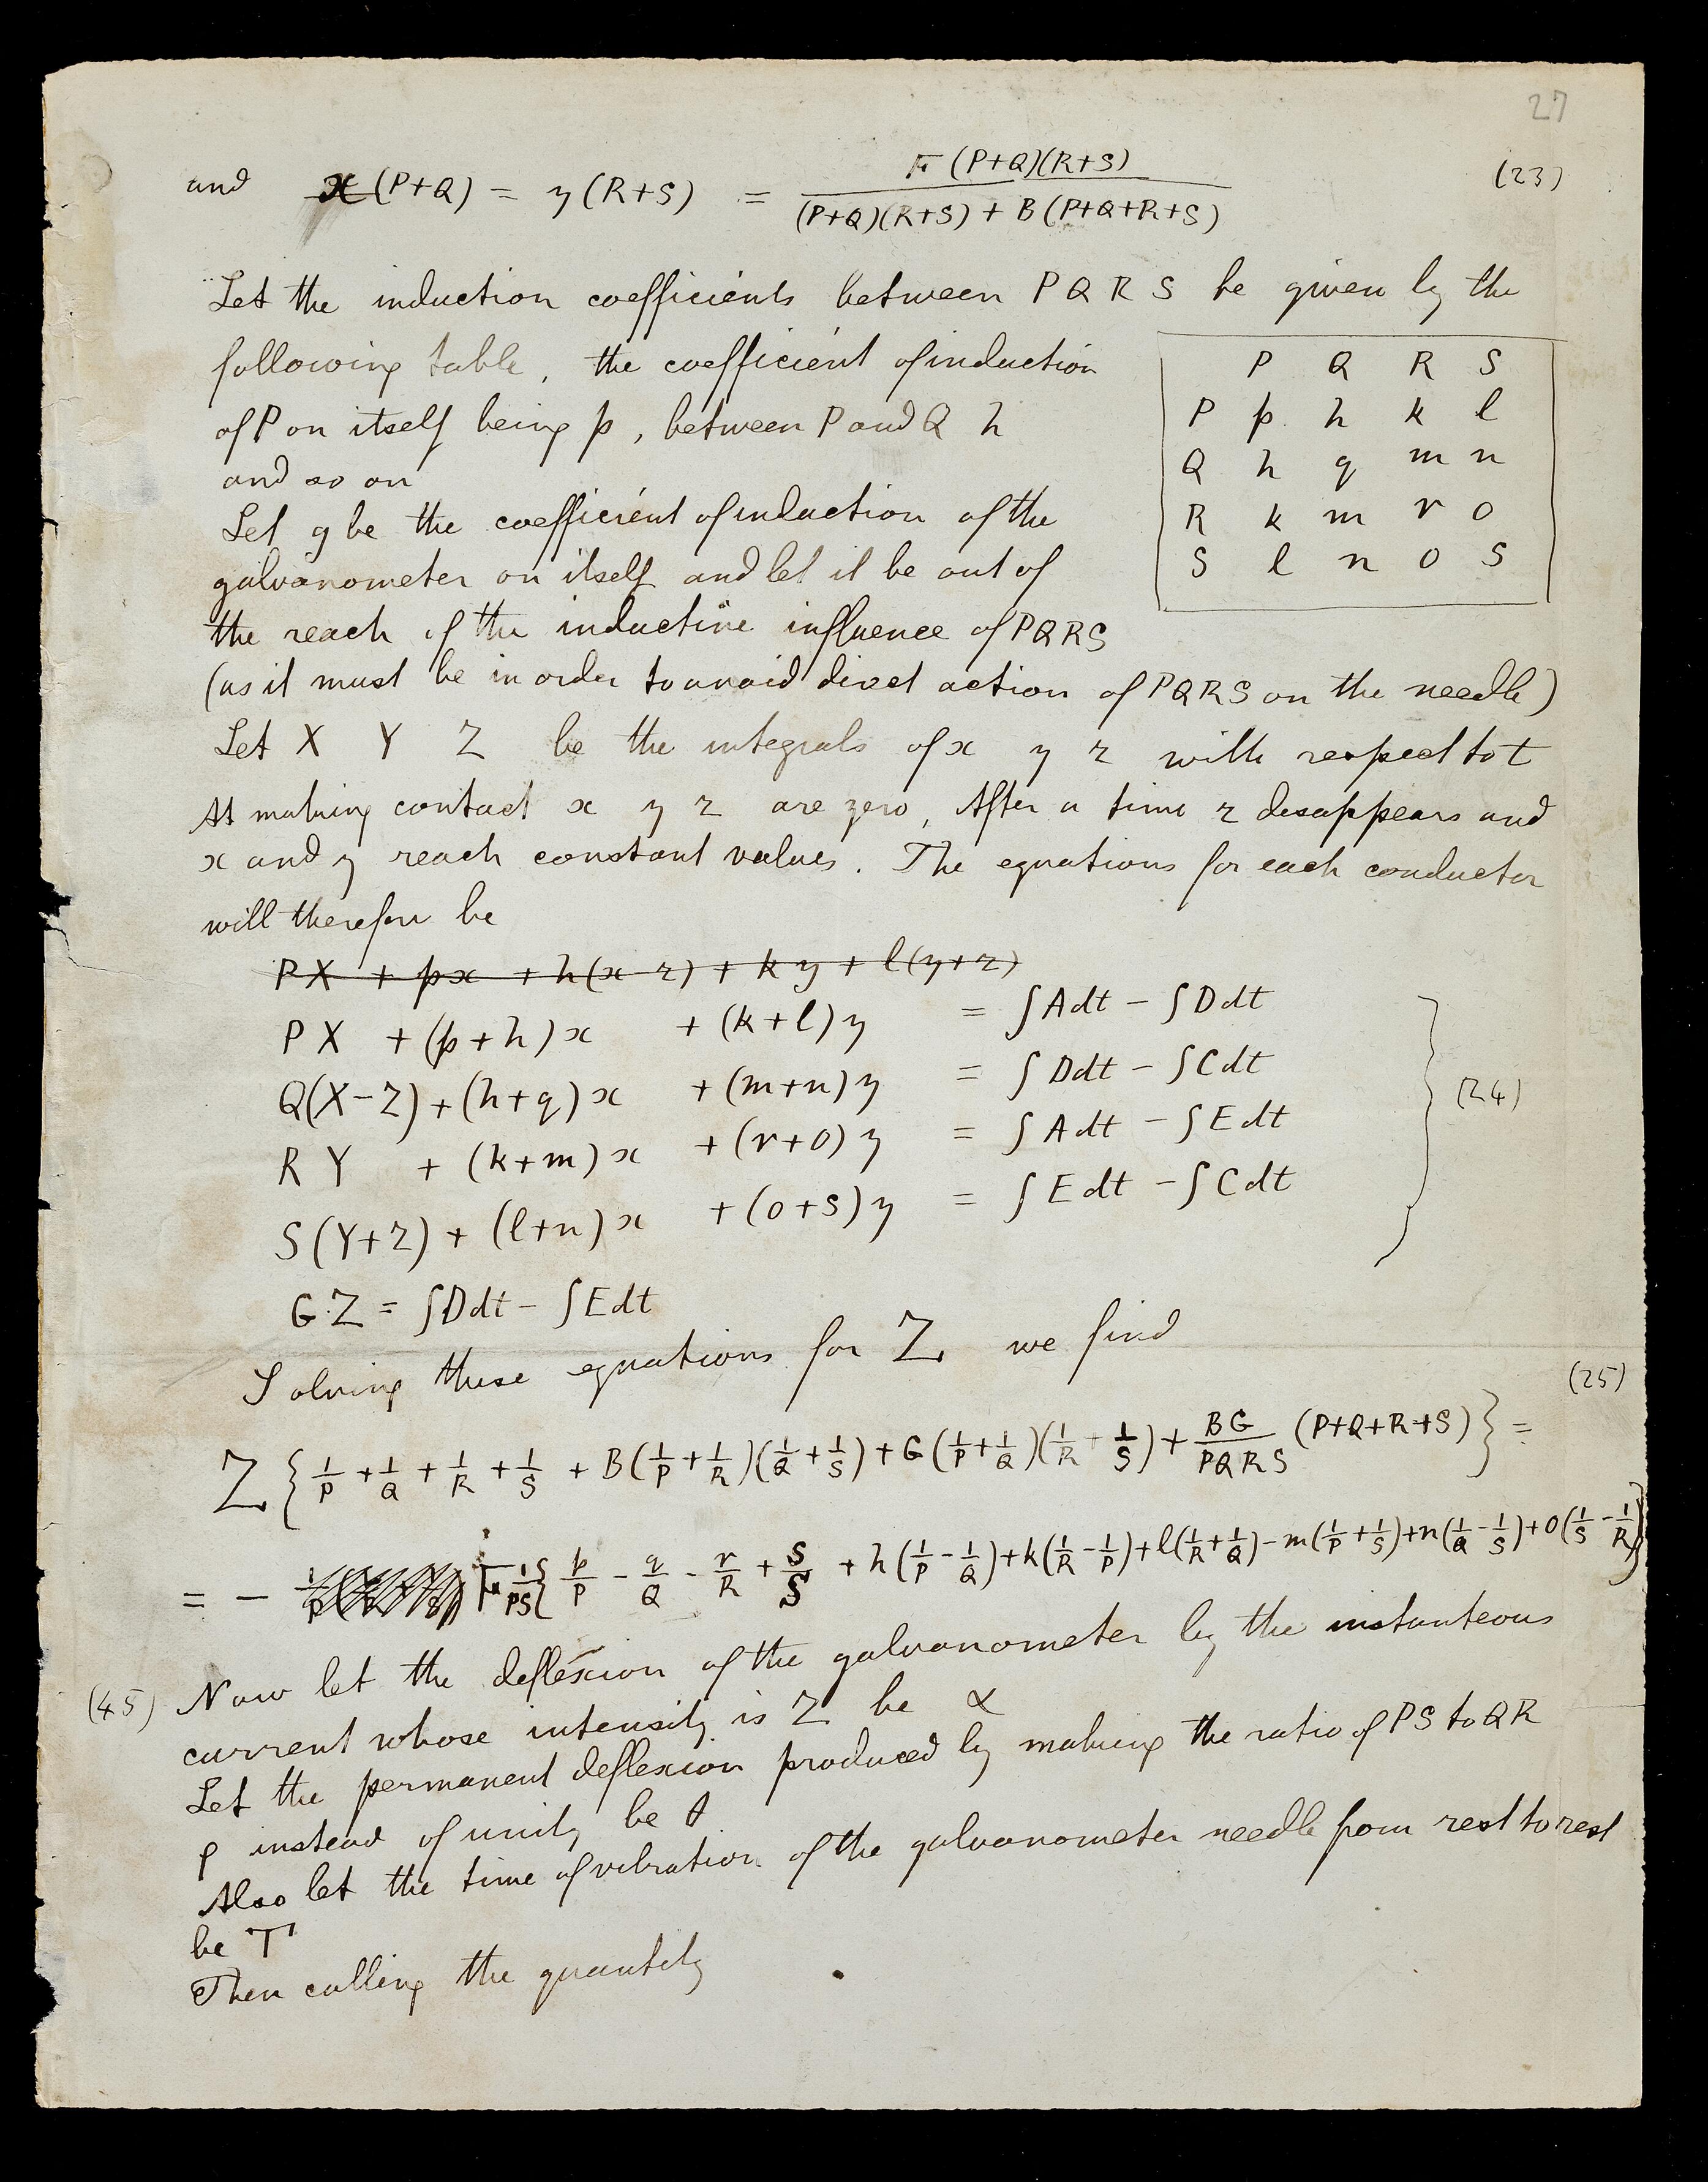 27
and x(P+Q) = y(R+S) = F(P+Q)(R+S) / (P+Q)(R+S) + B(P+Q+R+S) (23)
Let the induction coefficients between P Q R S be given by the
following table, the coefficient of induction
of P on itself being p, between P and Q h
and so on
P Q R S
P p h k l
Q h q m n
R k m r o
S l n o s
Let g be the coefficient of induction of the
galvanometer on itself and let it be out of
the reach of the inductive influence of PQRS
(as it must be in order to avoid direct action of PQRS on the needle)
Let X Y Z be the integrals of x y z with respect to t
At making contact x y z are zero, After a time z disappears and
x and y reach constant values. The equations for each conductor
will therefore be
PX + px + h(x-z) + ky + l(y+z)
PX + (p+h)x + (k+l)y = ∫Adt - ∫Ddt
Q(X-Z) + (h+q)x + (m+n)y = ∫Ddt - ∫Cdt
RY + (k+m)x + (r+o)y = ∫Adt - ∫Edt (24)
S(Y+Z) + (l+n)x + (o+s)y = ∫Edt - ∫Cdt
GZ = ∫Ddt - ∫Edt
Solving these equations for Z we find
(25)
Z{1/P + 1/Q + 1/R + 1/S + B(1/P + 1/R)(1/Q + 1/S) + G(1/P + 1/Q)(1/R + 1/S) + BG/PQRS (P+Q+R+S)} =
= - F 1/PS{p/P - q/Q - r/R + s/S + h(1/P - 1/Q) + k(1/R - 1/P) + l(1/R + 1/Q) - m(1/P + 1/S) + n(1/Q - 1/S) + o(1/S - 1/R)}
(45) Now let the deflexion of the galvanometer by the instanteous
current whose intensity is Z be α
Let the permanent deflexion produced by making the ratio of PS to QR
ρ instead of unity be θ
Also let the time of vibration of the galvanometer needle from rest to rest
be T
Then calling the quantity